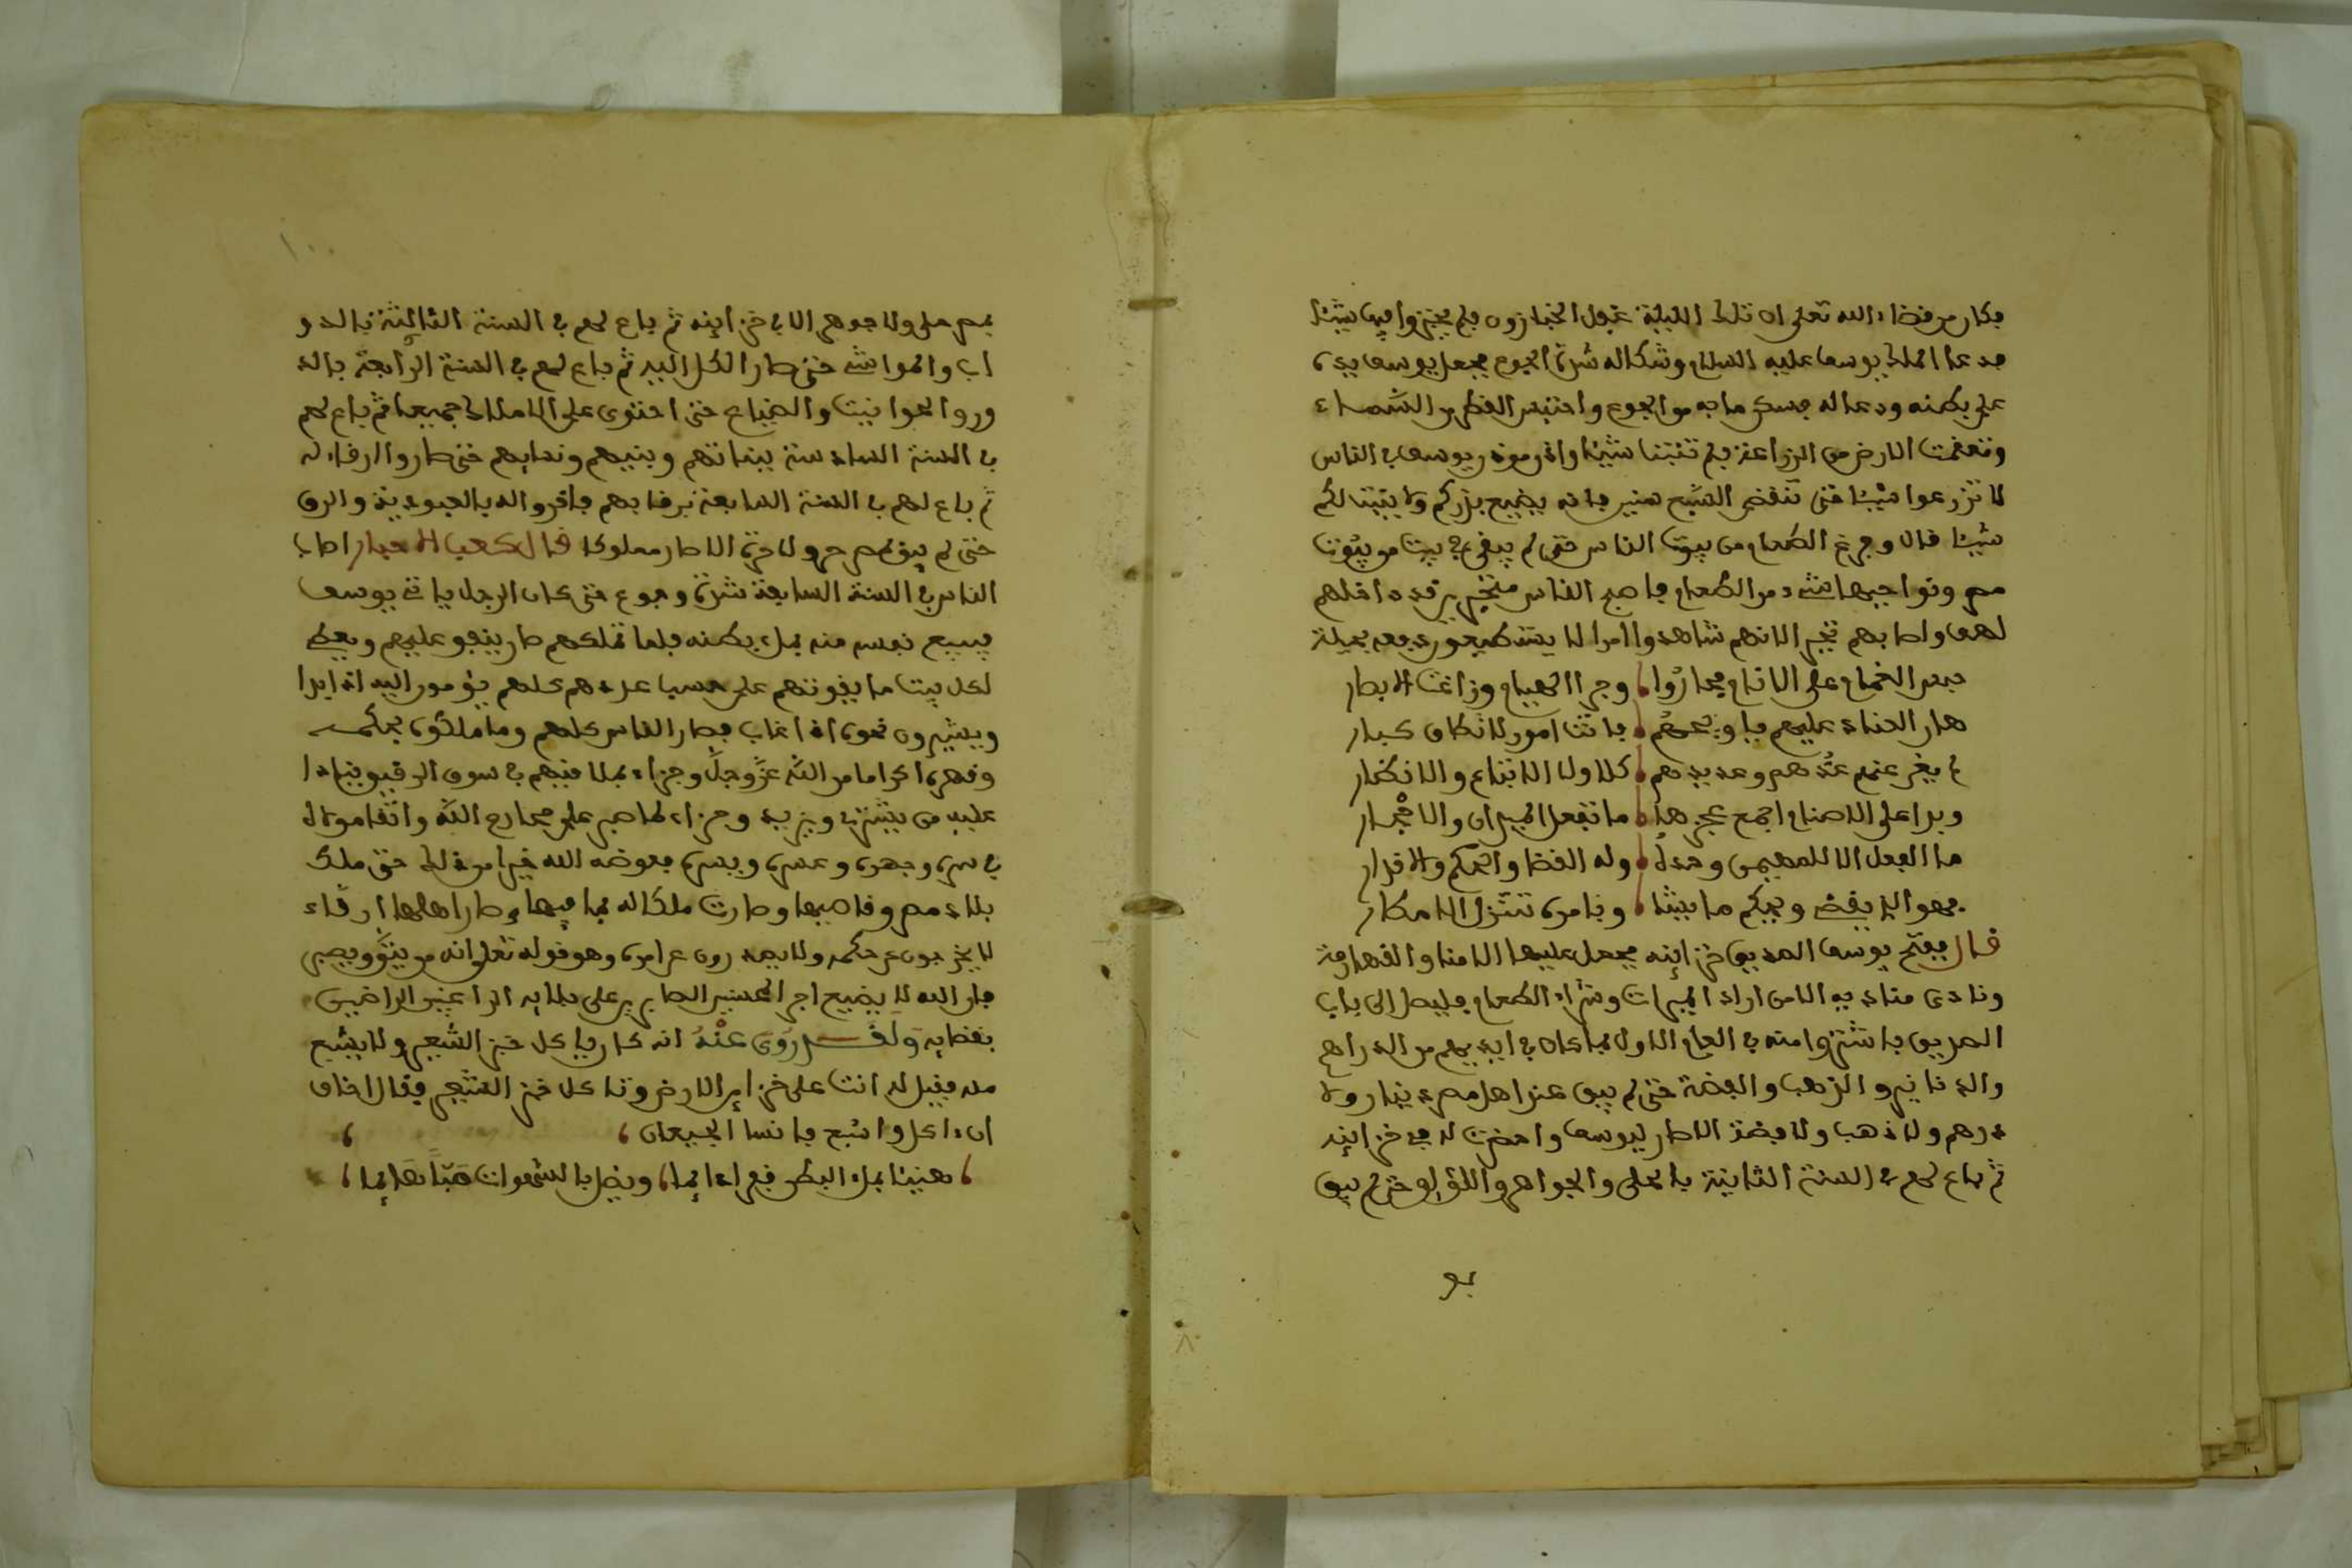 فكان من قضاء الله تعلى ان تلك الليلة غفل الخبازون فلم يخبزوا فيها شيئا
فدعا الملك يوسف عليه السلام وشكا له شدة الجوع فجعل يوسف يده
على بطنه ودعا له فسكن ما به من الجوع واحتبس القطر من السماء
ومنعت الارض من الزراعة فلم تنبت شيئا واذن موذن يوسف في الناس
لا تزرعوا شيئا حتى تنقضي السبع سنين فانه يضيع بذركم ولا ينبت لكم
شيئا قال وفرغ الطعام من بيوت الناس حتى لم يبقى في بيت من بيوت
مصر ونواحيها شيء من الطعام فاصبح الناس متحيرين قد داخلهم
لهف واصابهم تحير لانهم شاهدوا امرا لا يستطيعون دفعه بحيلة
حبس الغمام على الانام فحاروا وجرا الهيام وزاغت الابصار
هار العناد عليهم فاويحهم باتت امور لا تكاف كبار
لم يغن عنهم عدهم وعديدهم كلا ولا الاتباع والانصار
وبدا على الاصنام اجمع عجزها ما تفعل النيران والاحجار
ما الفعل الا للمهيمن وحده وله القضا والحكم والاقدار
فهو الذي يقضي ويحكم ما يشا وبامره تتنزل الامطار
قال ففتح يوسف الصديق خزاينه فجعل عليها الامنا والقهارمة
ونادى مناديه الا من اراد الميرات وشراء الطعام فليصل الى باب
الصديق فاشتروا منه في العام الاول بما كان في ايديهم من الدراهم
والدنانير والذهب والفضة حتى لم يبق عند اهل مصر دينار ولا
درهم ولا ذهب ولا فضة الا صار ليوسف واحضرت له في خزاينه
ثم باع لهم في السنة الثانية بالحلي والجواهر واللؤلؤ حتى لم يبق
بمصر حلي ولا جوهر الا في خزاينه ثم باع لهم في السنة الثالثة بالدو
اب والمواشي حتى صار الكل اليه ثم باع لهم في السنة الرابعة بالد
ور والحوانيت والضياع حتى احتوى على الاملاك جميعا ثم باع لهم
في السنة السادسة ببناتهم وبنيهم ونسايهم حتى صاروا ارقاء له
ثم باع لهم في السنة السابعة برقابهم فاقروا له بالعبودية والرق
حتى لم يبق بمصر حر ولا حرة الا صار مملوكا قال كعب الاحبار اصاب
الناس في السنة السابعة شدة وجوع حتى كان الرجل ياتي يوسف
فيبيع نفسه منه بملء بطنه فلما تملكهم صار ينفق عليهم ويعطي
لكل بيت ما يقوتهم على حسب عددهم كلهم يؤمون اليه اذا بدا
ويشيرون نحوه اذا غاب فصار الناس كلهم وما ملكوه بحكمه
وقهره اكراما من الله عز وجل وجزاء بما لاقيهم في سوق الرقيق ينادا
عليه من يشتري ويزيد وجزاء لما صبر على محارم الله واتقا مولاه
في سره وجهره وعسره ويسره فعوضه الله خيرا من ذلك حتى ملك
بلاد مصر وقاصيها وصارت ملكا له بما فيها وصار اهلها ارقاء
لا يخرجون عن حكمه ولا يصدرون عن امره وهو قوله تعلى انه من يتق ويصبر
فان الله لا يضيع اجر المحسنين الصابرين على بلايه الراغبين الراضيين
بقضايه وَلَقَد رُوِيَ عَنْهُ انه كان ياكل خبز الشعير ولا يشبع
منه فقيل له انت على خزاين الارض وتاكل خبز الشعير فقال اخاف
ان ءاكل واشبع فانسا الجيعان
هنيئا بملء البطن قعر امايها ويضل بالشهوات هبا هايما
بو
١٠
٨